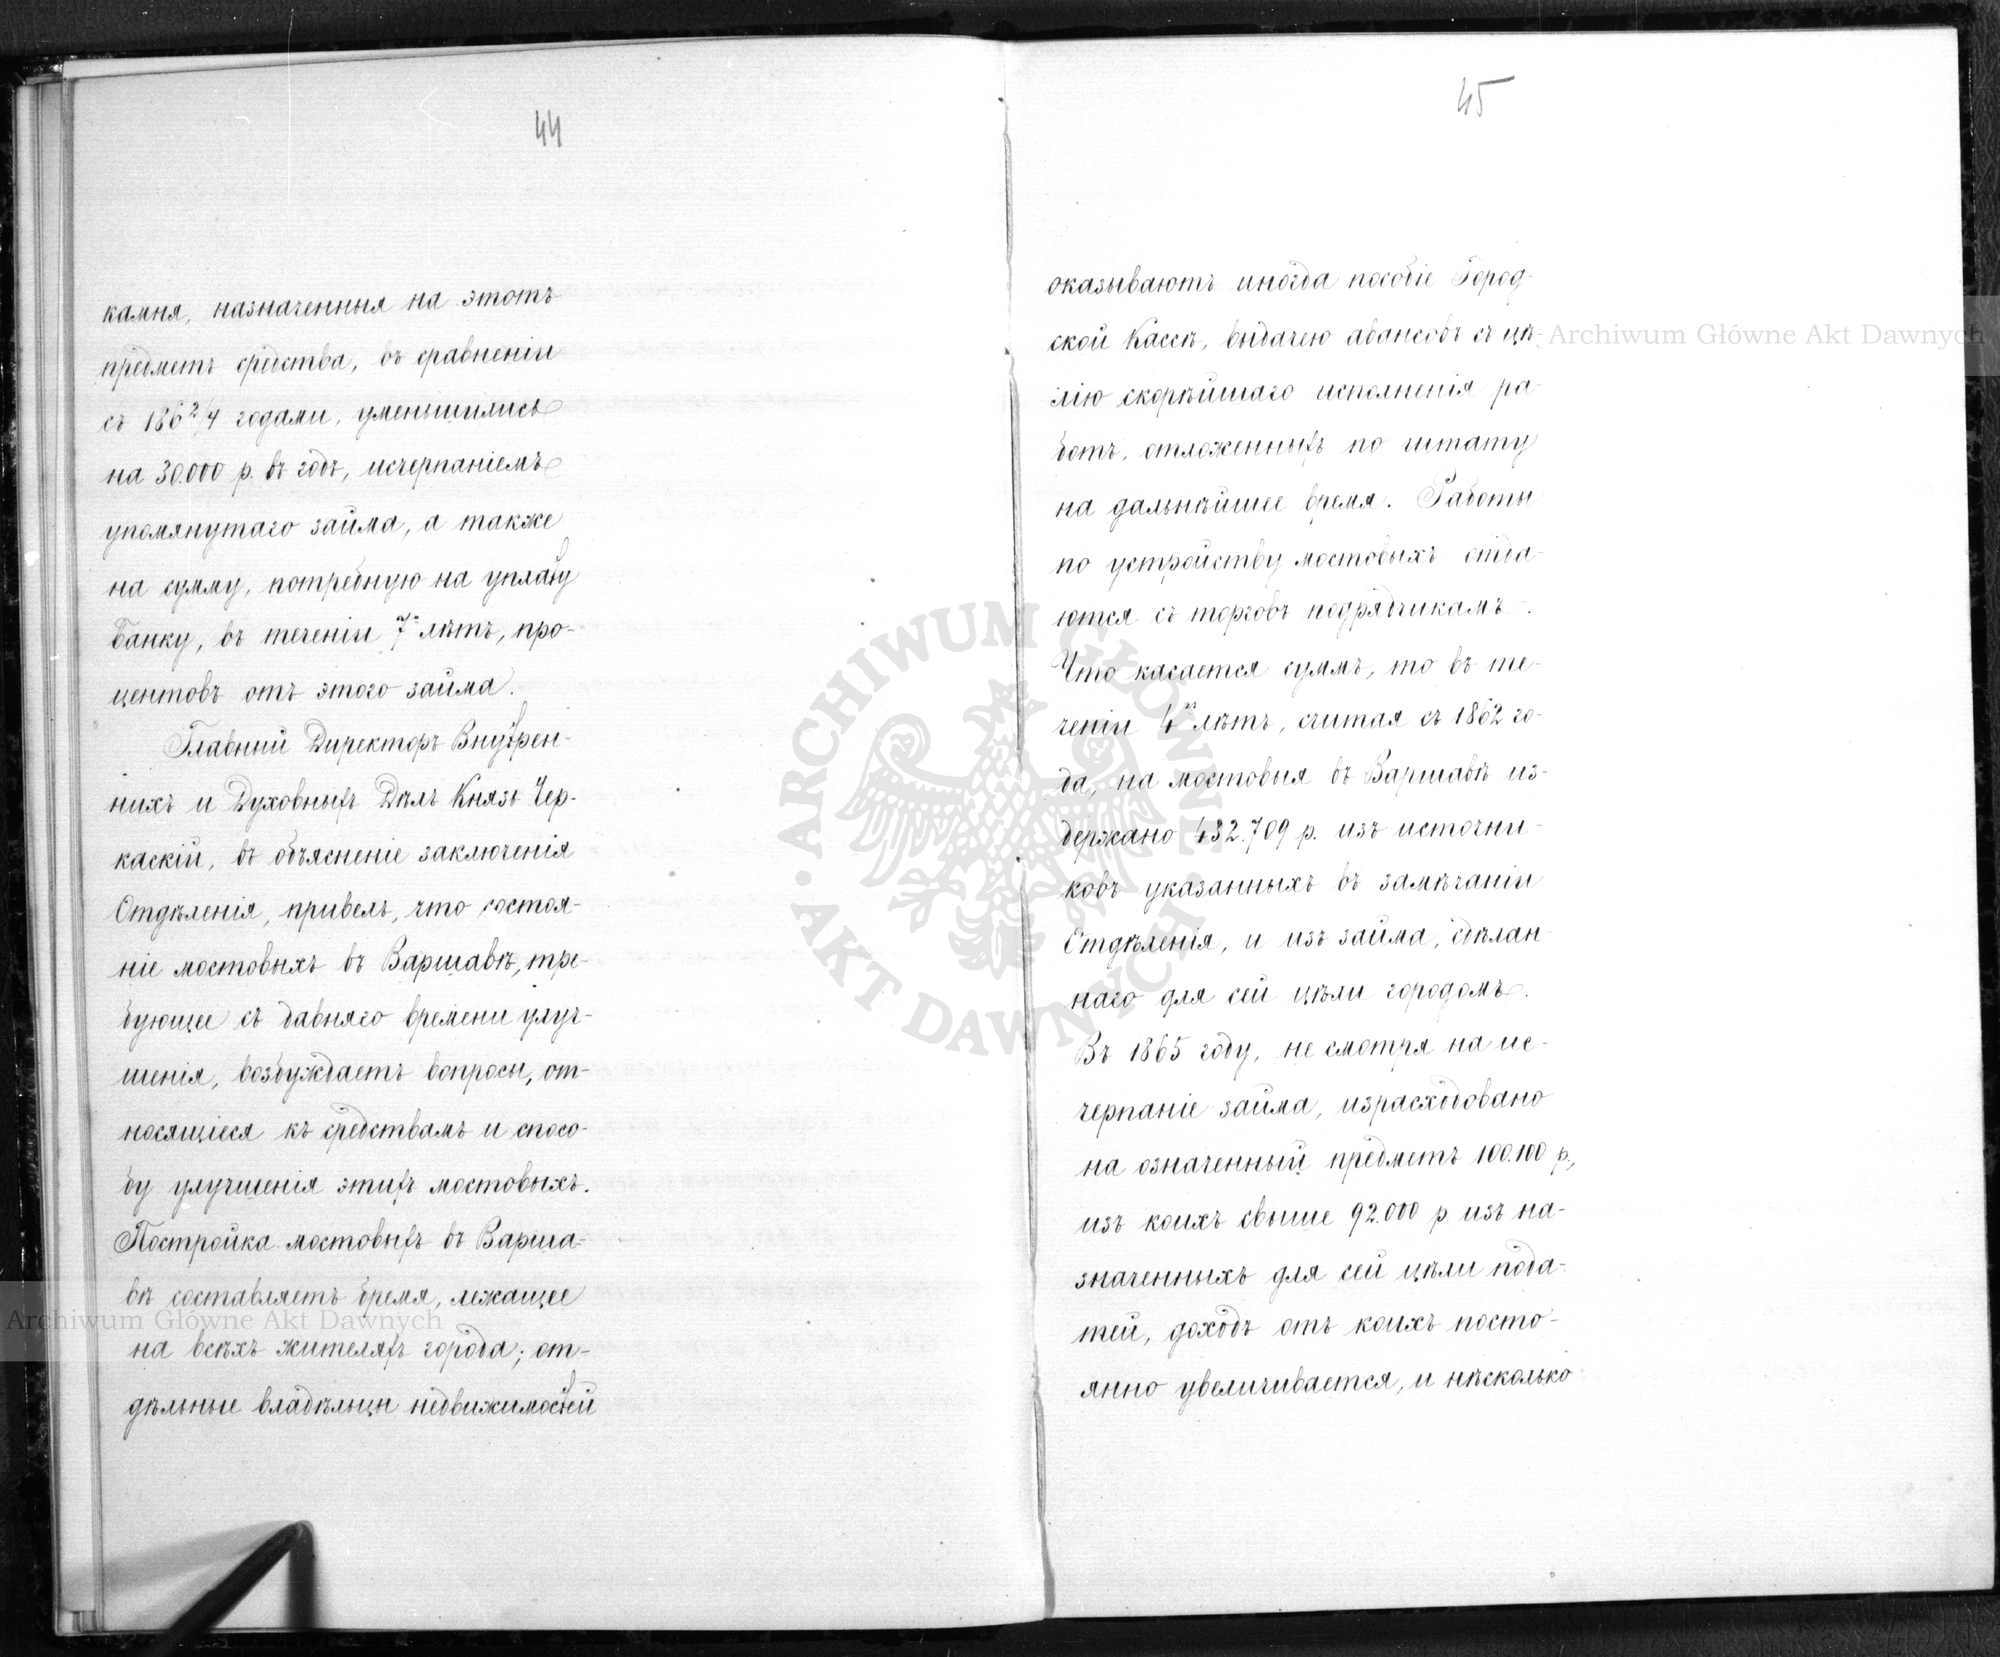 44
камня, назначенныя на этотъ
предметъ средства, въ сравненіи
съ 186 2/4 годами, уменьшились
на 30.000 р. въ годъ, исчерпаніемъ
упомянутаго займа, а также
на сумму, потребную на уплату
Банку, въ теченіи 7и лѣтъ, про-
центовъ отъ этого займа.
Главный Директоръ Внутрен-
нихъ и Духовныхъ Дѣлъ Князь Чер-
каскій, въ объясненіе заключенія
Отдѣленія, привелъ, что состоя-
ніе мостовыхъ въ Варшавѣ, тре-
бующее съ давняго времени улуч-
шенія, возбуждаетъ вопросы, от-
носящіеся къ средствамъ и спосо-
бу улучшенія этихъ мостовыхъ.
Постройка мостовыхъ въ Варша-
вѣ составляетъ бремя, лежащее
на всѣхъ жителяхъ города; от-
дѣльные владѣльцы недвижимостей
45
оказываютъ иногда пособіе Город-
ской Кассѣ, выдачею авансовъ съ цѣ-
лію скорѣйшаго исполненія ра-
ботъ, отложенныхъ по штату
на дальнѣйшее время. Работы
по устройству мостовыхъ отда-
ются съ торговъ подрядчикамъ.
Что касается суммъ, то въ те-
ченіи 4х лѣтъ, считая съ 1862 го-
да, на мостовыя въ Варшавѣ из-
держано 432.709 р. изъ источни-
ковъ указанныхъ въ замѣчаніи
Отдѣленія, и изъ займа, сдѣлан-
наго для сей цѣли городомъ.
Въ 1865 году, не смотря на ис-
черпаніе займа, израсходовано
на означенный предметъ 100.100 р.,
изъ коихъ свыше 92.000 р. изъ на-
значенныхъ для сей цѣли пода-
тей, доходъ отъ коихъ посто-
янно увеличивается, и нѣсколько
Archiwum Główne Akt Dawnych
Archiwum Główne Akt Dawnych
ARCHIWUM GŁÓWNE · AKT DAWNYCH ·